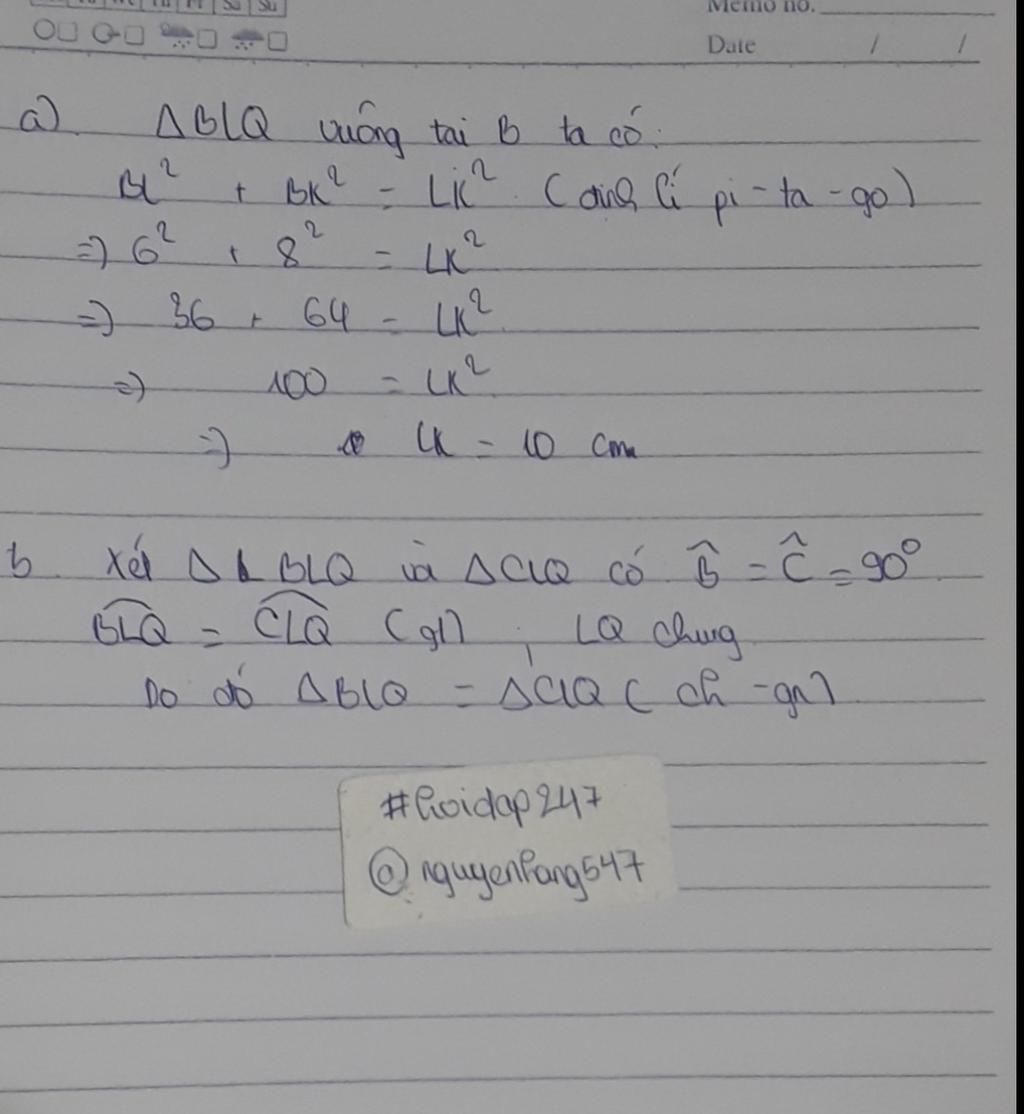 Sa Su
Memo no.
Date / /
a) ΔBLQ vuông tại B ta có:
BL² + BK² = LK² (định lí pi-ta-go)
=> 6² + 8² = LK²
=> 36 + 64 = LK²
=> 100 = LK²
=> LK = 10 cm
b Xét Δ BLQ và ΔCLQ có B̂ = Ĉ = 90°
BLQ = CLQ (gt) ; LQ chung
Do đó ΔBLQ = ΔCLQ ( ch - gn)
#hoidap247
@nguyenhang547